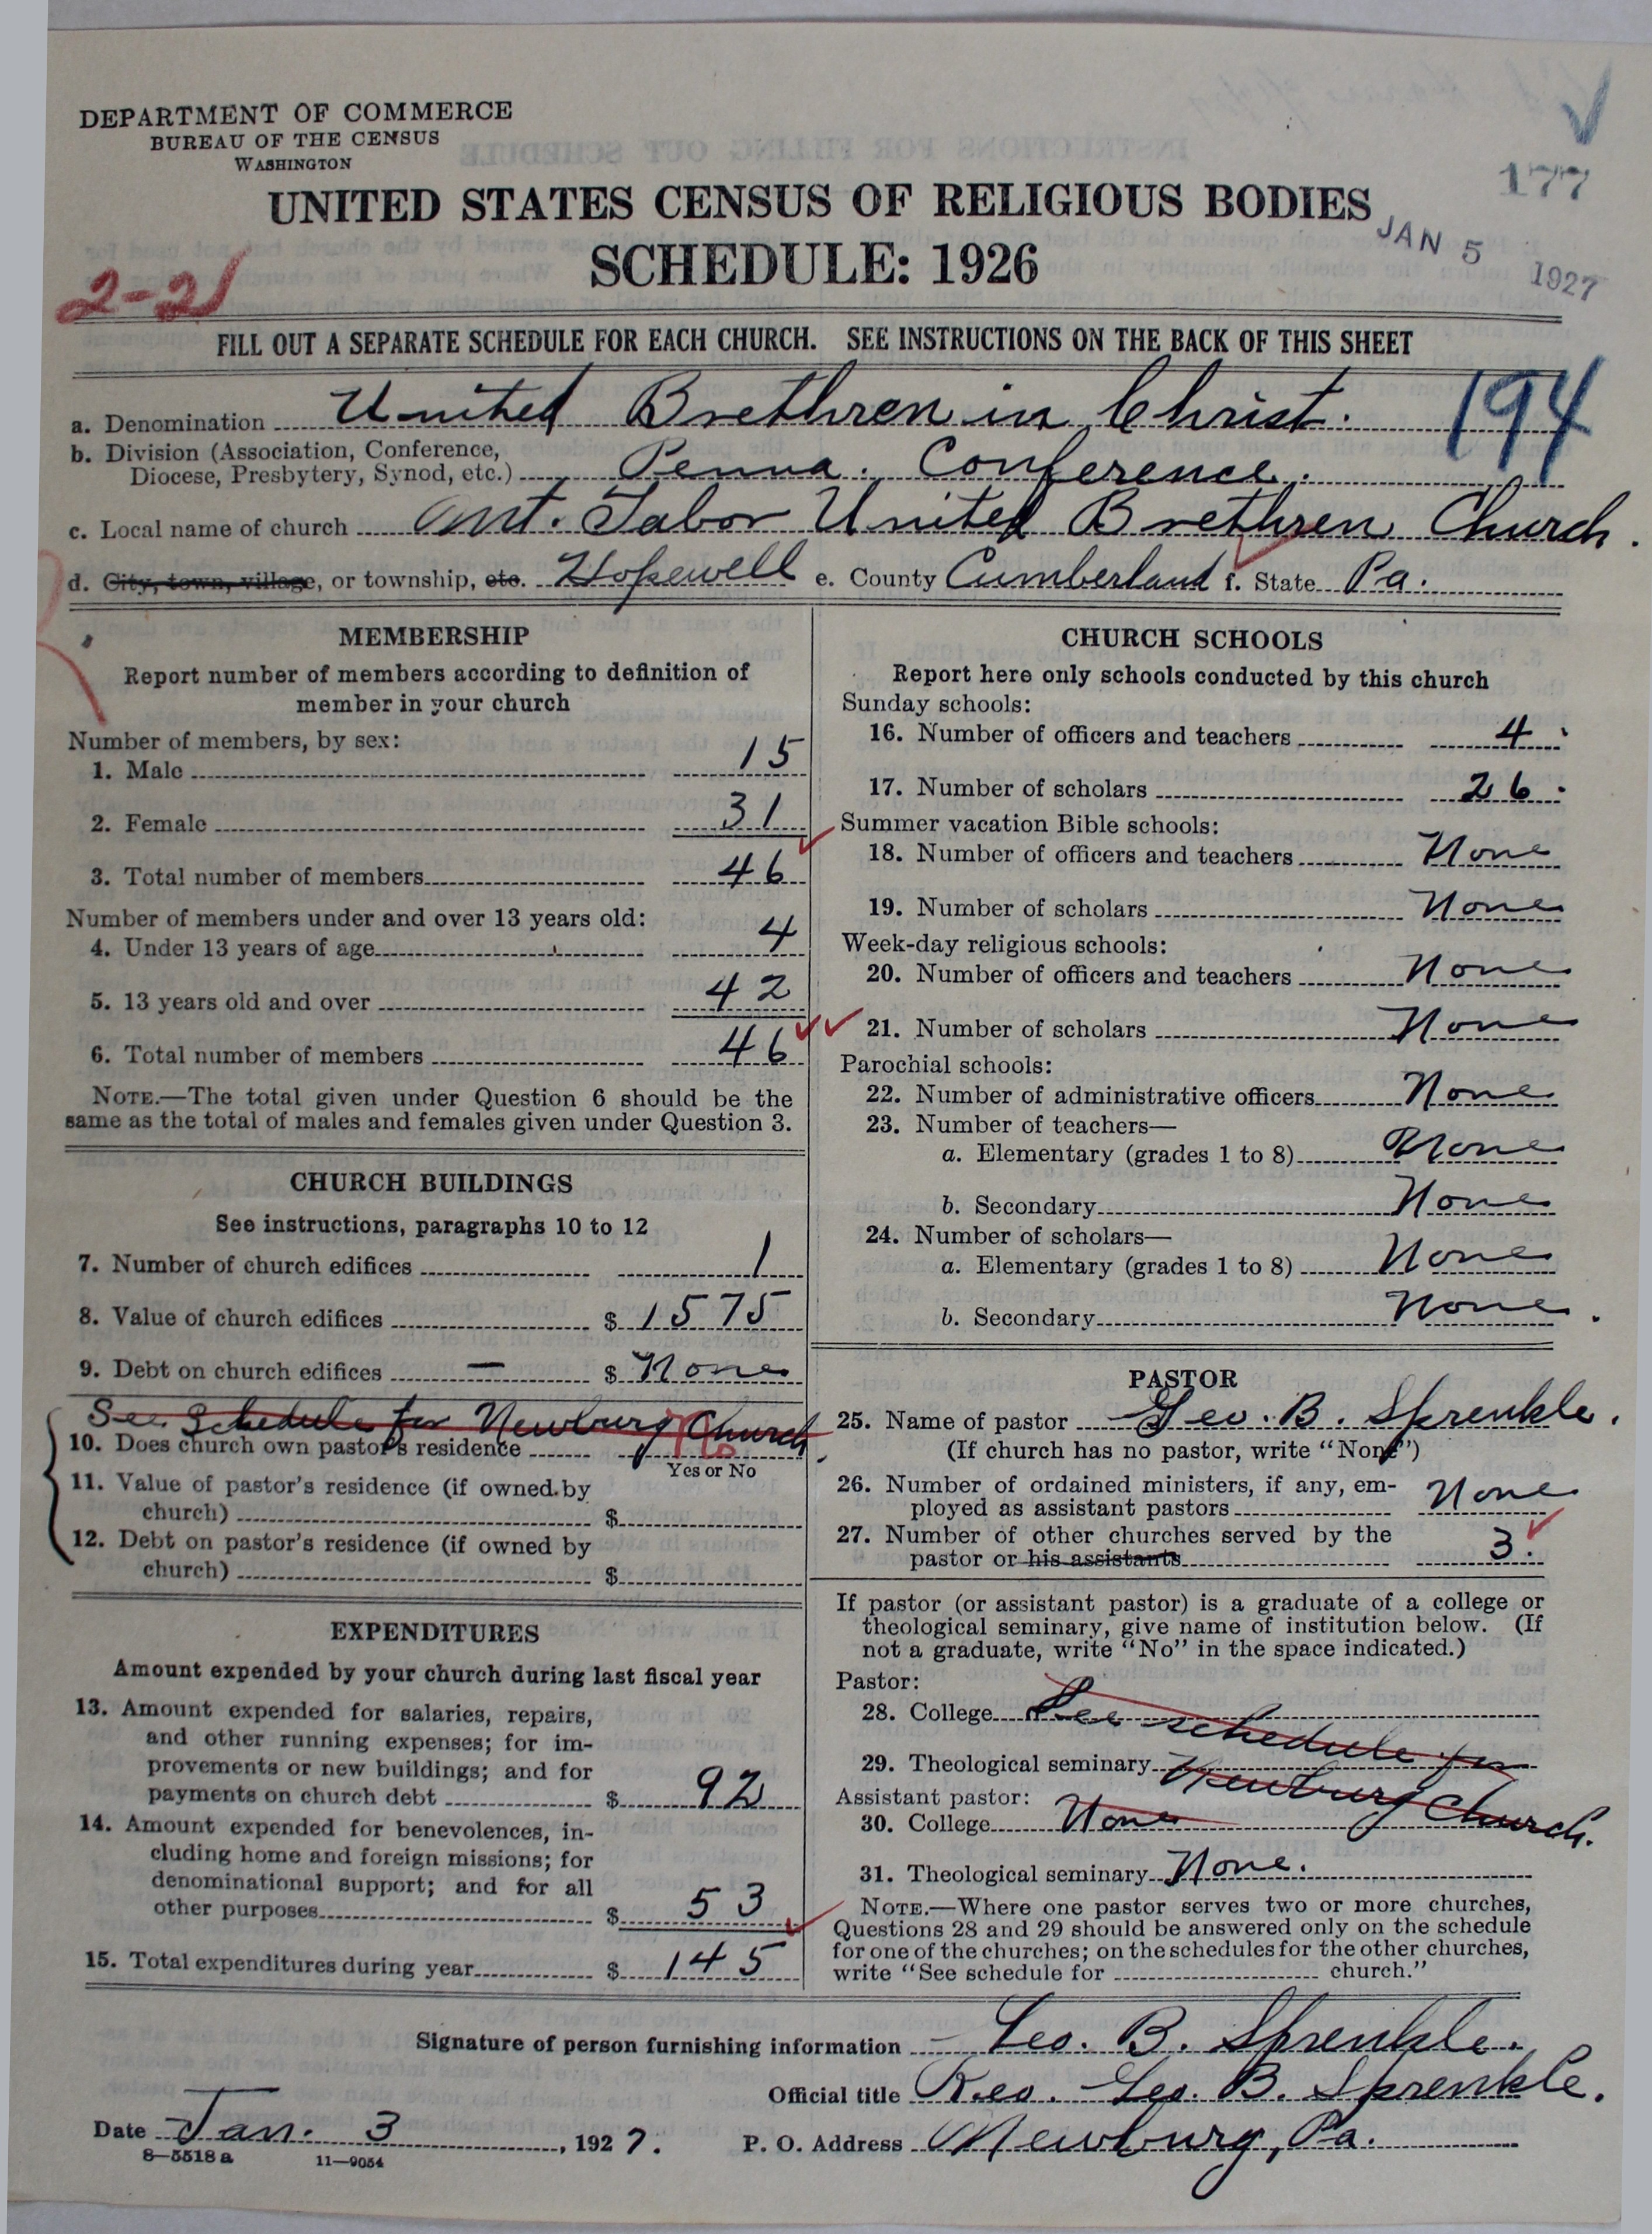 DEPARTMENT OF COMMERCE
BUREAU OF THE CENSUS
WASHINGTON
177
UNITED STATES CENSUS OF RELIGIOUS BODIES
SCHEDULE: 1926
JAN 5 1927
2-21
FILL OUT A SEPARATE SCHEDULE FOR EACH CHURCH. SEE INSTRUCTIONS ON THE BACK OF THIS SHEET
194
a. Denomination United Brethren in Christ.
b. Division (Association, Conference,
Diocese, Presbytery, Synod, etc.) Penna. Conference.
c. Local name of church Mt. Tabor United Brethren Church.
d. City, town, village, or township, etc. Hopewell e. County Cumberland f. State Pa.
MEMBERSHIP
Report number of members according to definition of
member in your church
Number of members, by sex:
1. Male 15
2. Female 31
3. Total number of members 46
Number of members under and over 13 years old:
4. Under 13 years of age 4
5. 13 years old and over 42
6. Total number of members 46
NOTE.—The total given under Question 6 should be the
same as the total of males and females given under Question 3.
CHURCH BUILDINGS
See instructions, paragraphs 10 to 12
7. Number of church edifices 1
8. Value of church edifices $ 1575
9. Debt on church edifices — $ None
See Schedule for Newburg Church.
10. Does church own pastor's residence No
Yes or No
11. Value of pastor's residence (if owned by
church) $
12. Debt on pastor's residence (if owned by
church) $
EXPENDITURES
Amount expended by your church during last fiscal year
13. Amount expended for salaries, repairs,
and other running expenses; for im-
provements or new buildings; and for
payments on church debt $ 92
14. Amount expended for benevolences, in-
cluding home and foreign missions; for
denominational support; and for all
other purposes $ 53
15. Total expenditures during year $ 145
CHURCH SCHOOLS
Report here only schools conducted by this church
Sunday schools:
16. Number of officers and teachers 4
17. Number of scholars 26
Summer vacation Bible schools:
18. Number of officers and teachers None
19. Number of scholars None
Week-day religious schools:
20. Number of officers and teachers None
21. Number of scholars None
Parochial schools:
22. Number of administrative officers None
23. Number of teachers—
a. Elementary (grades 1 to 8) None
b. Secondary None
24. Number of scholars—
a. Elementary (grades 1 to 8) None
b. Secondary None.
PASTOR
25. Name of pastor Geo. B. Sprenkle.
(If church has no pastor, write "None")
26. Number of ordained ministers, if any, em-
ployed as assistant pastors None
27. Number of other churches served by the
pastor or his assistants 3.
If pastor (or assistant pastor) is a graduate of a college or
theological seminary, give name of institution below. (If
not a graduate, write "No" in the space indicated.)
Pastor:
28. College See schedule for
29. Theological seminary Newburg Church.
Assistant pastor:
30. College None
31. Theological seminary None.
NOTE.—Where one pastor serves two or more churches,
Questions 28 and 29 should be answered only on the schedule
for one of the churches; on the schedules for the other churches,
write "See schedule for church."
Signature of person furnishing information Geo. B. Sprenkle.
Official title Rev. Geo. B. Sprenkle.
Date Jan. 3, 1927. P. O. Address Newburg, Pa.
8—5518 a 11—9054